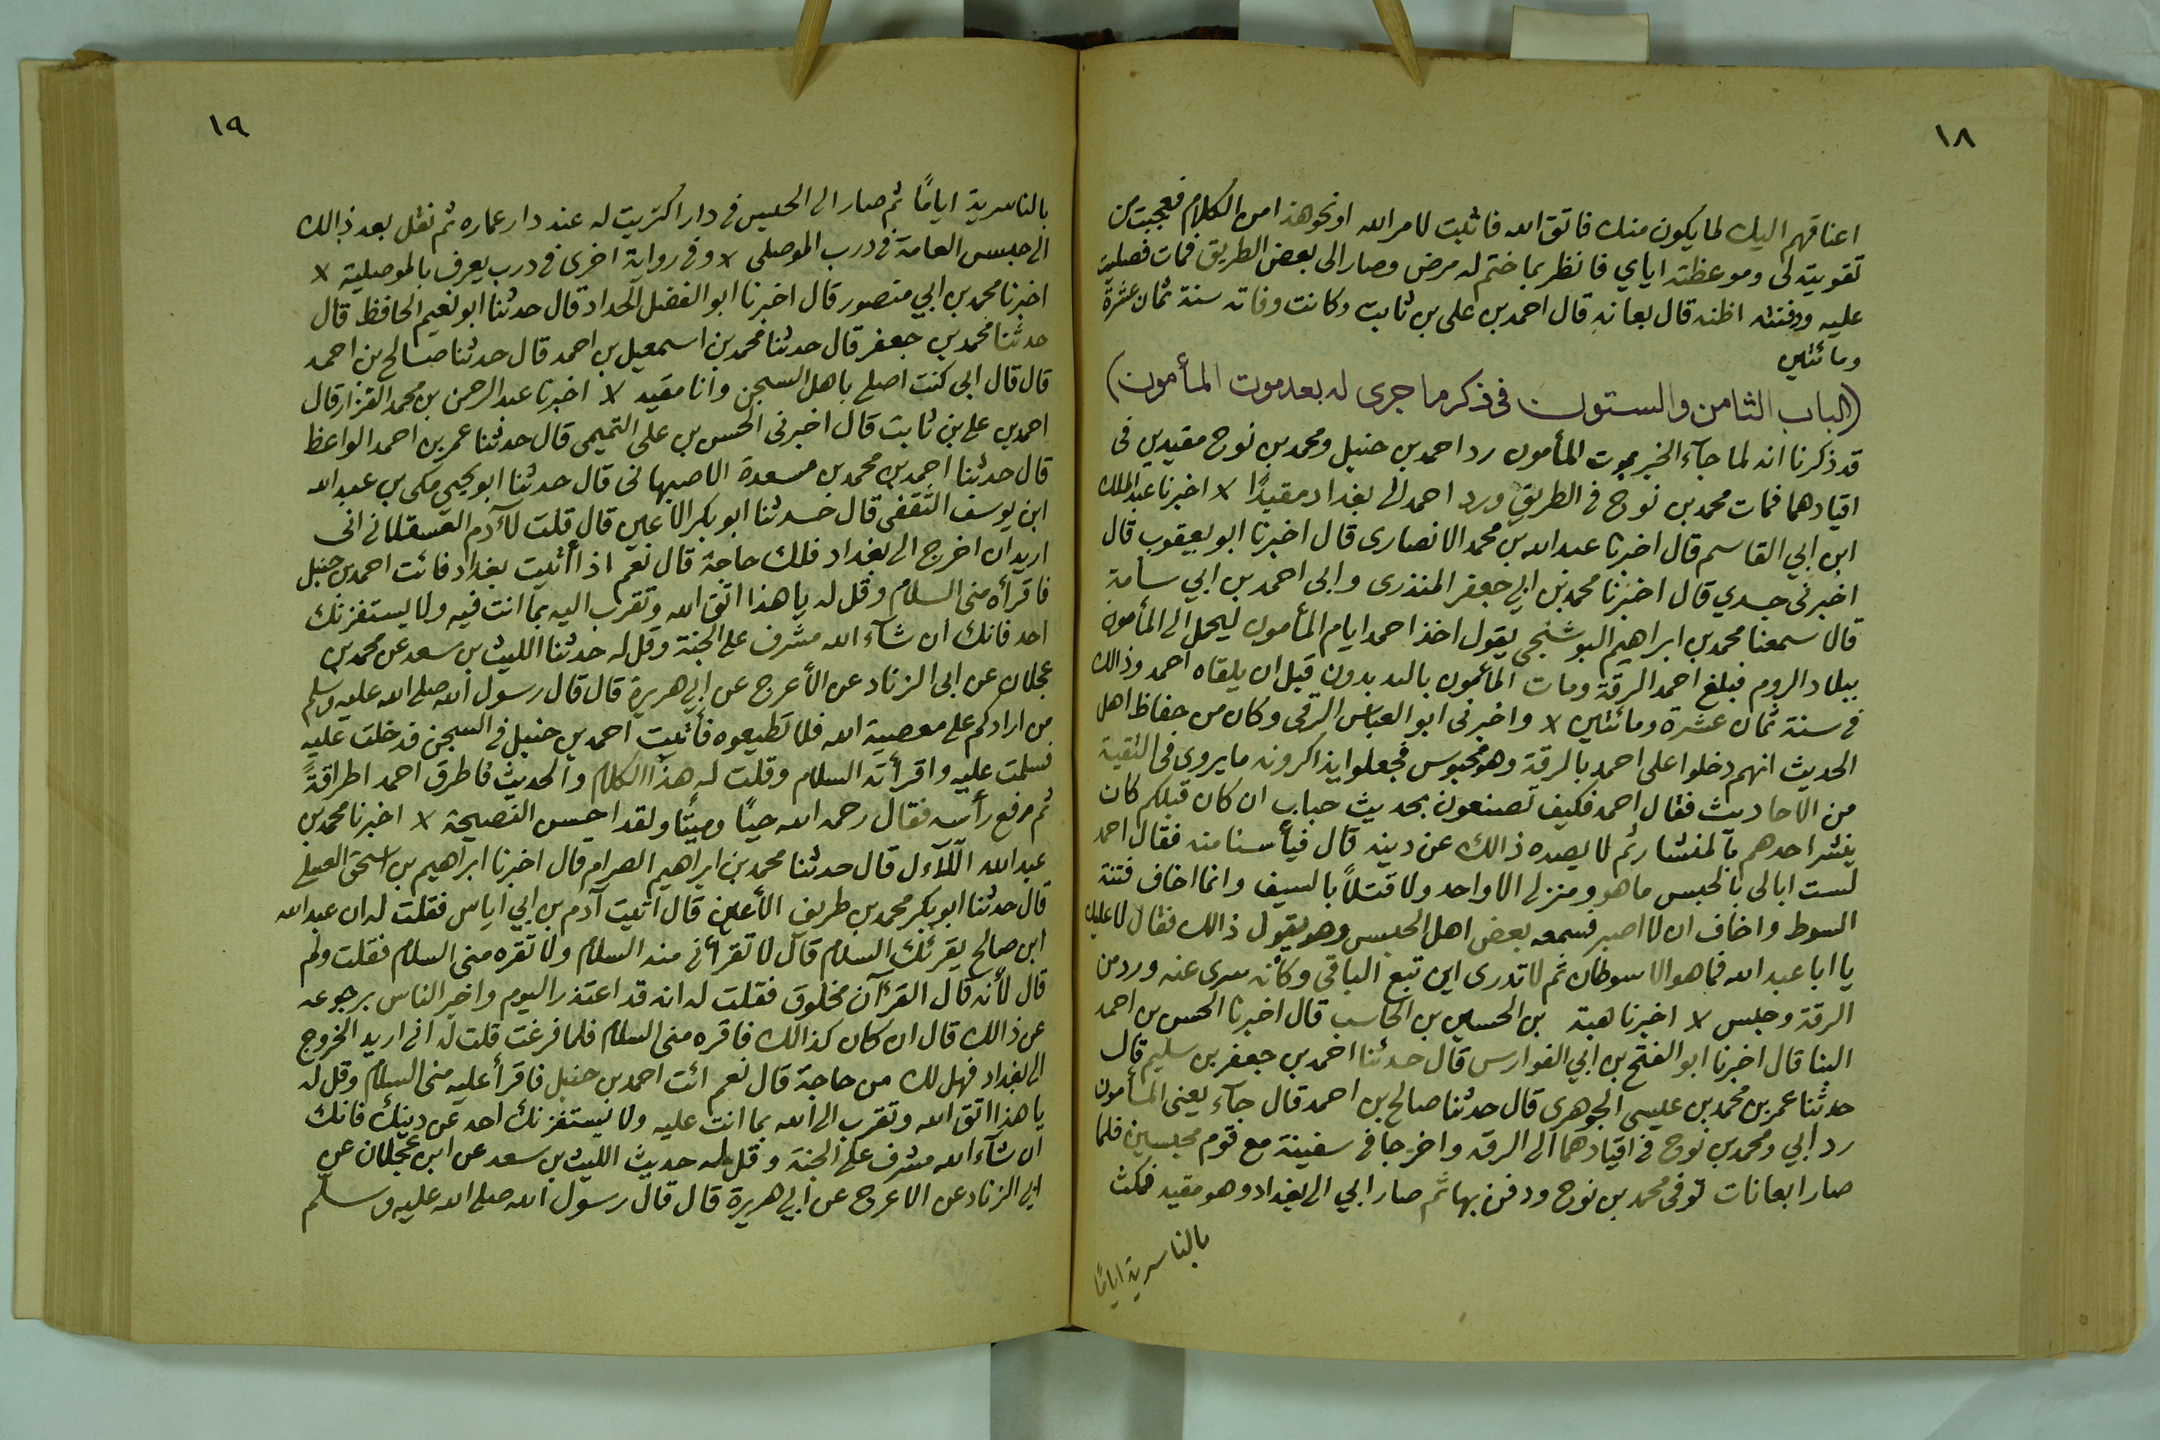 ١٨
اعناقهم اليك لما يكون منك فاتق الله فاثبت لامر الله او نحو هذا من الكلام فعجبت من
تقويته لى وموعظته اياي فانظر بما ختم له مرض وصار الى بعض الطريق فمات فصليت
عليه ودفنته اظنه قال بعانه قال احمد بن على بن ثابت وكانت وفاته سنة ثمان عشرة
ومائتين
(الباب الثامن والستون فى ذكر ما جرى له بعد موت المأمون)
قد ذكرنا انه لما جآء الخبر بموت المأمون رد احمد بن حنبل ومحمد بن نوح مقيدين فى
اقيادهما فمات محمد بن نوح فى الطريق ورد احمد الى بغداد مقيدًا x اخبرنا عبد الملك
ابن ابي القاسم قال اخبرنا عبد الله بن محمد الانصارى قال اخبرنا ابو يعقوب قال
اخبرنى جدي قال اخبرنا محمد بن ابي جعفر المنذرى وابى احمد بن ابي سامة
قالا سمعنا محمد بن ابراهيم البوشنجى يقول اخذ احمد ايام المأمون ليحمل الى المأمون
ببلاد الروم فبلغ احمد الرقة ومات المأمون بالبدبدون قبل ان يلقاه احمد وذالك
فى سنة ثمان عشرة ومائتين x واخبرنى ابو العباس الرقى وكان من حفاظ اهل
الحديث انهم دخلوا على احمد بالرقة وهو محبوس فجعلوا يذاكرونه ما يروى فى التقية
من الاحاديث فقال احمد فكيف تصنعون بحديث حباب ان كان قبلكم كان
ينشر احدهم بالمنشار ثم لا يصده ذالك عن دينه قال فيأسنا منه فقال احمد
لست ابالى بالحبس ما هو ومنزلى الا واحد ولا قتلاً بالسيف وانما اخاف فتنة
السوط واخاف ان لا اصبر فسمعه بعض اهل الحبس وهو يقول ذالك فقال لا عليك
يا ابا عبد الله فما هو الا سوطان ثم لا تدرى اين تبع الباقى وكأنه سرى عنه ورد من
الرقة وحبس x اخبرنا هبة بن الحسين بن الحاسب قال اخبرنا الحسن بن احمد
البنا قال اخبرنا ابو الفتح بن ابي الفوارس قال حدثنا احمد بن جعفر بن سليم قال
حدثنا عمر بن محمد بن عليسى الجوهرى قال حدثنا صالح بن احمد قال جآء يعنى المأمون
رد ابي ومحمد بن نوح فى اقيادهما الى الرقه واخرجا فى سفينة مع قوم محبسين فلما
صارا بعانات توفى محمد بن نوح ودفن بها ثم صار ابي الى بغداد وهو مقيد فمكث
بالناسرية اياما
١٩
بالناسرية ايامًا ثم صار الى الحبس فى دار اكتريت له عند دار عماره ثم نقل بعد ذالك
الى حبس العامة فى درب الموصلى x وفى رواية اخرى فى درب يعرف بالموصلية x
اخبرنا محمد بن ابي منصور قال اخبرنا ابو الفضل الحداد قال حدثنا ابو نعيم الحافظ قال
حدثنا محمد بن جعفر قال حدثنا محمد بن اسمعيل بن احمد قال حدثنا صالح بن احمد
قال قال ابى كنت اصلى باهل السجن وانا مقيد x اخبرنا عبد الرحمن بن محمد القزاز قال
احمد بن على بن ثابت قال اخبرنى الحسن بن على التميمى قال حدثنا عمر بن احمد الواعظ
قال حدثنا احمد بن محمد بن مسعدة الاصبهانى قال حدثنا ابو يحيى مكى بن عبد الله
ابن يوسف الثقفى قال حدثنا ابو بكر الاعين قال قلت لآدم العسقلانى انى
اريد ان اخرج الى بغداد فلك حاجة قال نعم اذا أتيت بغداد فائت احمد بن حنبل
فاقرأه منى السلام وقل له يا هذا اتق الله وتقرب اليه بما انت فيه ولا يستفزنك
احد فانك ان شآء الله مشرف على الجنة وقل له حدثنا الليث بن سعد عن محمد بن
عجلان عن ابى الزناد عن الأعرج عن ابي هريرة قال قال رسول الله صلى الله عليه وسلم
من ارادكم على معصية الله فلا تطيعوه فأتيت احمد بن حنبل فى السجن فدخلت عليه
فسلمت عليه واقرأته السلام وقلت له هذا الكلام والحديث فاطرق احمد اطراقةً
ثم رفع رأسه فقال رحمه الله حيًا وميتًا ولقد احسن النصيحة x اخبرنا محمد بن
عبد الله اللآل قال حدثنا محمد بن ابراهيم الصرام قال اخبرنا ابراهيم بن اسحق العسلى
قال حدثنا ابو بكر محمد بن طريف الأعين قال اتيت آدم بن ابي اياس فقلت له ان عبد الله
ابن صالح يقرئك السلام قال لا تقرأنى منه السلام ولا تقره منى السلام فقلت ولم
قال لأنه قال القرآن مخلوق فقلت له انه قد اعتذر اليوم واخبر الناس برجوعه
عن ذالك قال ان كان كذالك فاقره منى السلام فلما فرغت قلت له انى اريد الخروج
الى بغداد فهل لك من حاجة قال نعم ائت احمد بن حنبل فاقرأ عليه منى السلام وقل له
يا هذا اتق الله وتقرب الى الله بما انت عليه ولا يستفزنك احد عن دينك فانك
ان شآء الله مشرف على الجنة وقل له حديث الليث بن سعد عن ابن عجلان عن
ابى الزناد عن الاعرج عن ابي هريرة قال قال رسول الله صلى الله عليه وسلم